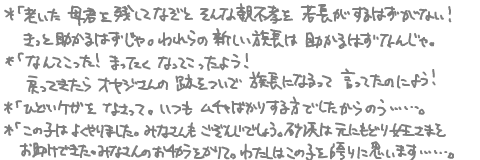 *「老いた 母君を 残してなぞと そんな親不孝を 若長がするはずがない!
きっと助かるはずじゃ。われらの 新しい族長は 助かるはずなんじゃ。
*「なんてこった! まったく なってこったよう!
戻ってきたら オヤジさんの 跡をついで 族長になるって 言ってたのによう!
*「ひどいケガを なさって。いつも ムチャばかりする方でしたからのう……。
*「この子は よくやりました。みなさんも ごぞんじでしょう。砂漠は元にもどり 女王さまを
お助けできた。みなさんの お力をかりて。わたしは この子を 誇りに思います……。